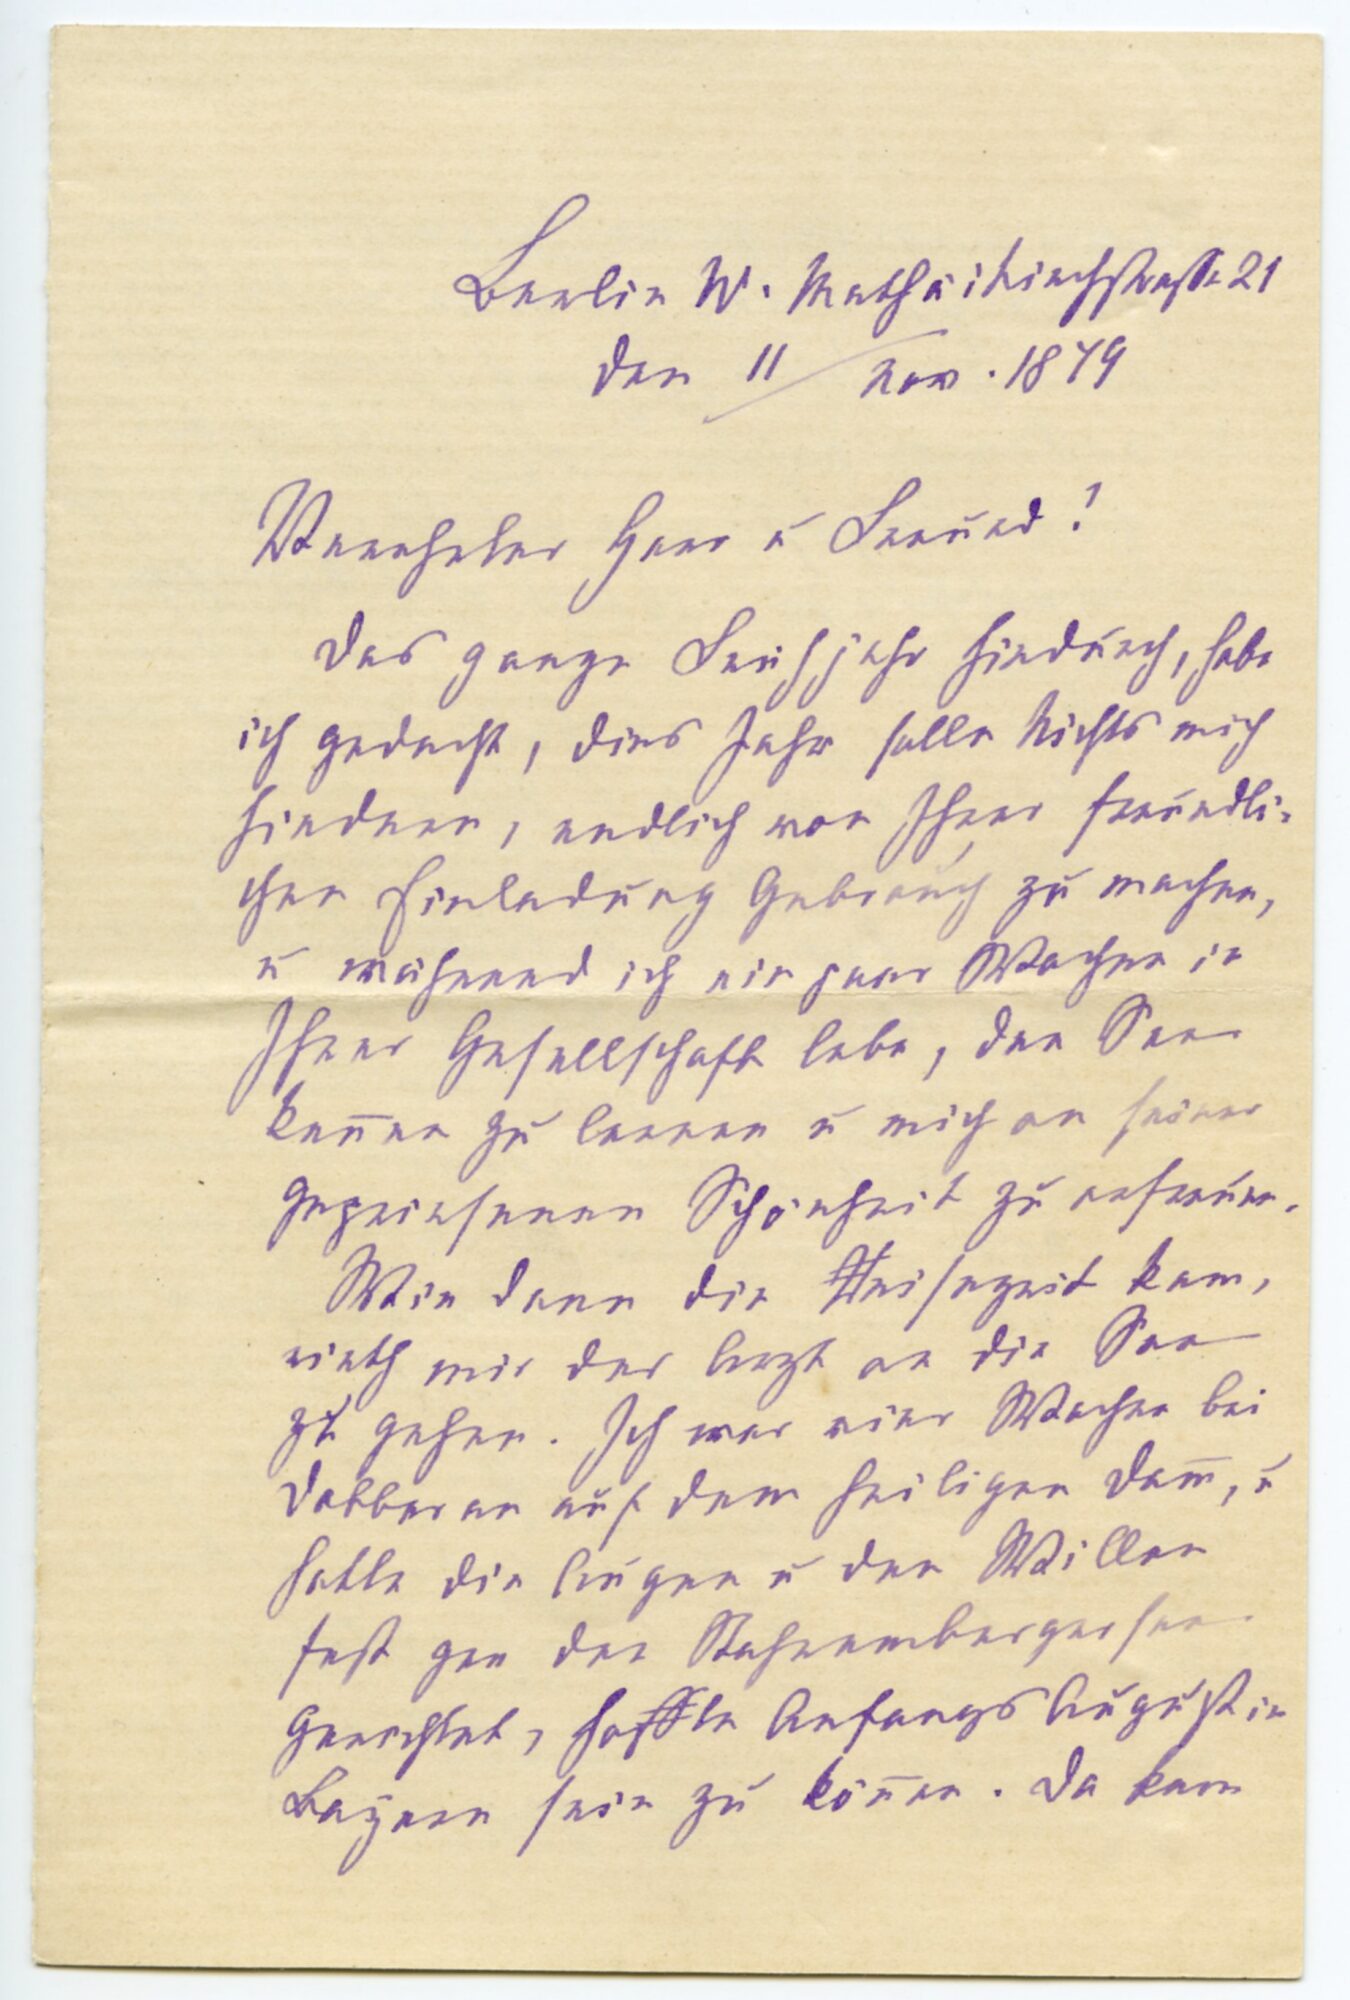 Berlin W. Mathäikirchstrasse 21
den 11/ Nov. 1879
Verehrter Herr u Freund!
Das ganze Frühjahr hindurch, habe
ich gedacht, dies Jahr solle Nichts mich
hindern, endlich von Ihrer freundli-
chen Einladung Gebrauch zu machen,
u während ich ein paar Wochen in
Ihrer Gesellschaft lebe, den See
kennen zu lernen u mich an seiner
gepriesenen Schönheit zu erfreuen.
Wie dann die Reisezeit kam,
rieth mir der Arzt an die See
zu gehen. Ich war vier Wochen bei
Dobberan auf dem heiligen Dam̅, u
hatte die Augen u den Willen
fest gen den Stahrembergersee
gerichtet, hoffte Anfangs August in
Bayern sein zu kön̅en. Da kam